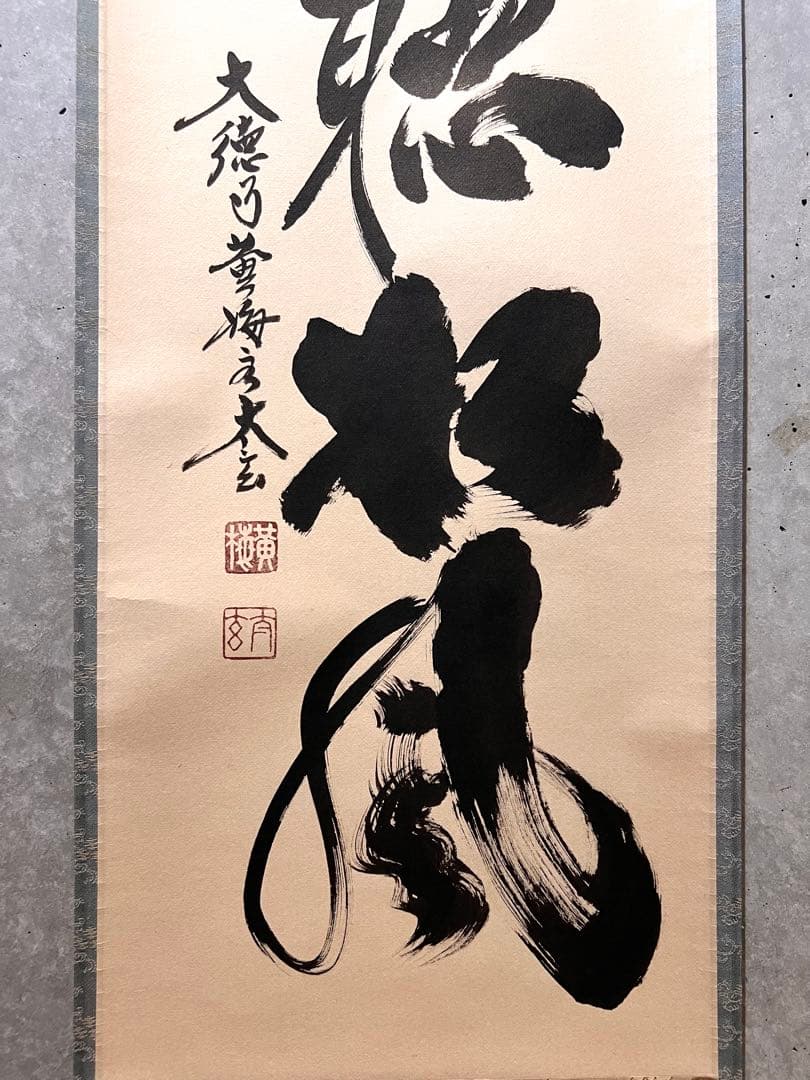 聴松風
大徳寺黄梅院太玄
黄梅
太玄